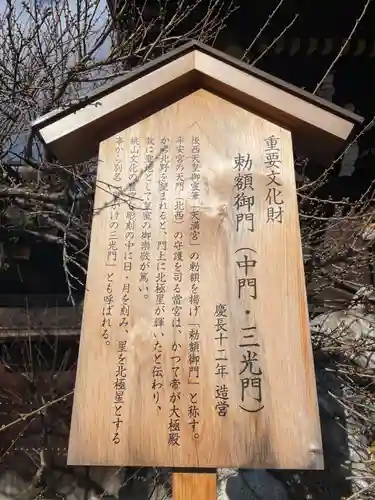 重要文化財
勅額御門（中門・三光門）
慶長十二年 造営
後西天皇御宸筆「天満宮」の勅額を揚げ「勅額御門」と称す。
平安宮の天門（北西）の守護を司る當宮は、かつて帝が大極殿
から北野を望まれると、門上に北極星が輝いたと伝わり、
故に聖地として皇室の御崇敬が篤い。
桃山文化の雅な彫刻の中に日・月を刻み、星を北極星とする
事から別名「星欠けの三光門」とも呼ばれる。